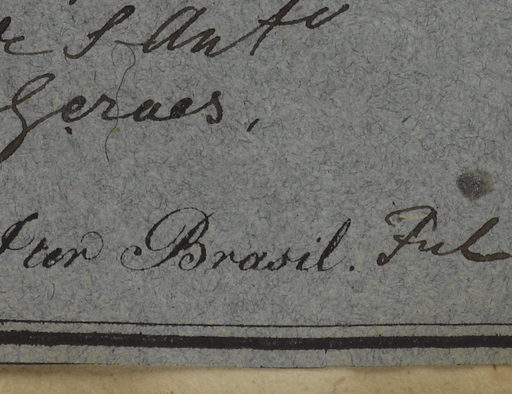 de S. Anto
Geraes,
Iter Brasil. Jul